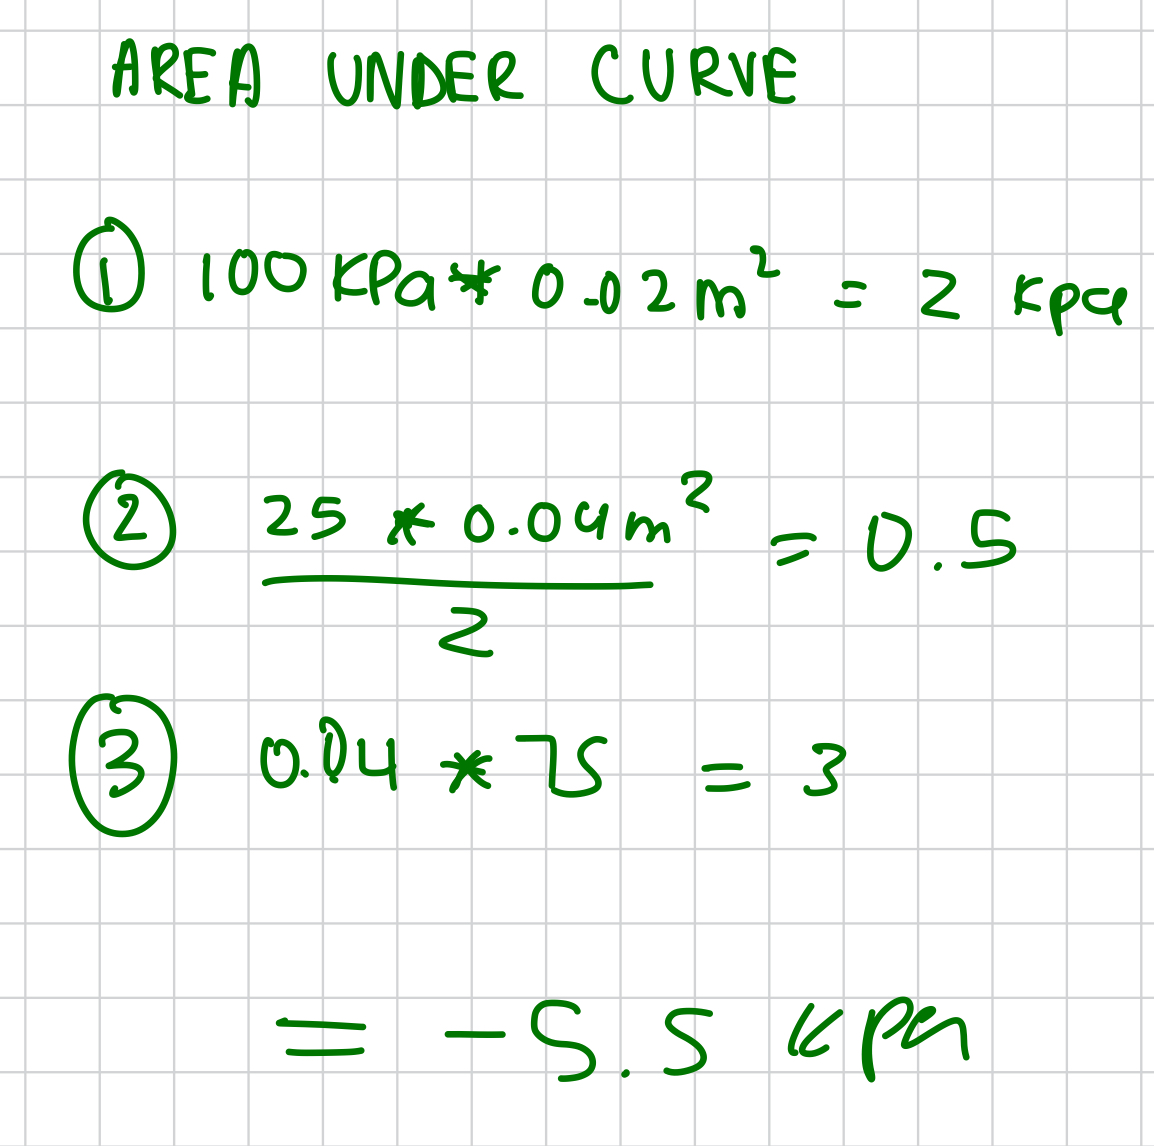 AREA UNDER CURVE
① 100 KPa * 0.02 m² = 2 Kpa
② 25 * 0.04 m² = 0.5
2
③ 0.04 * 75 = 3
= - 5.5 kpa